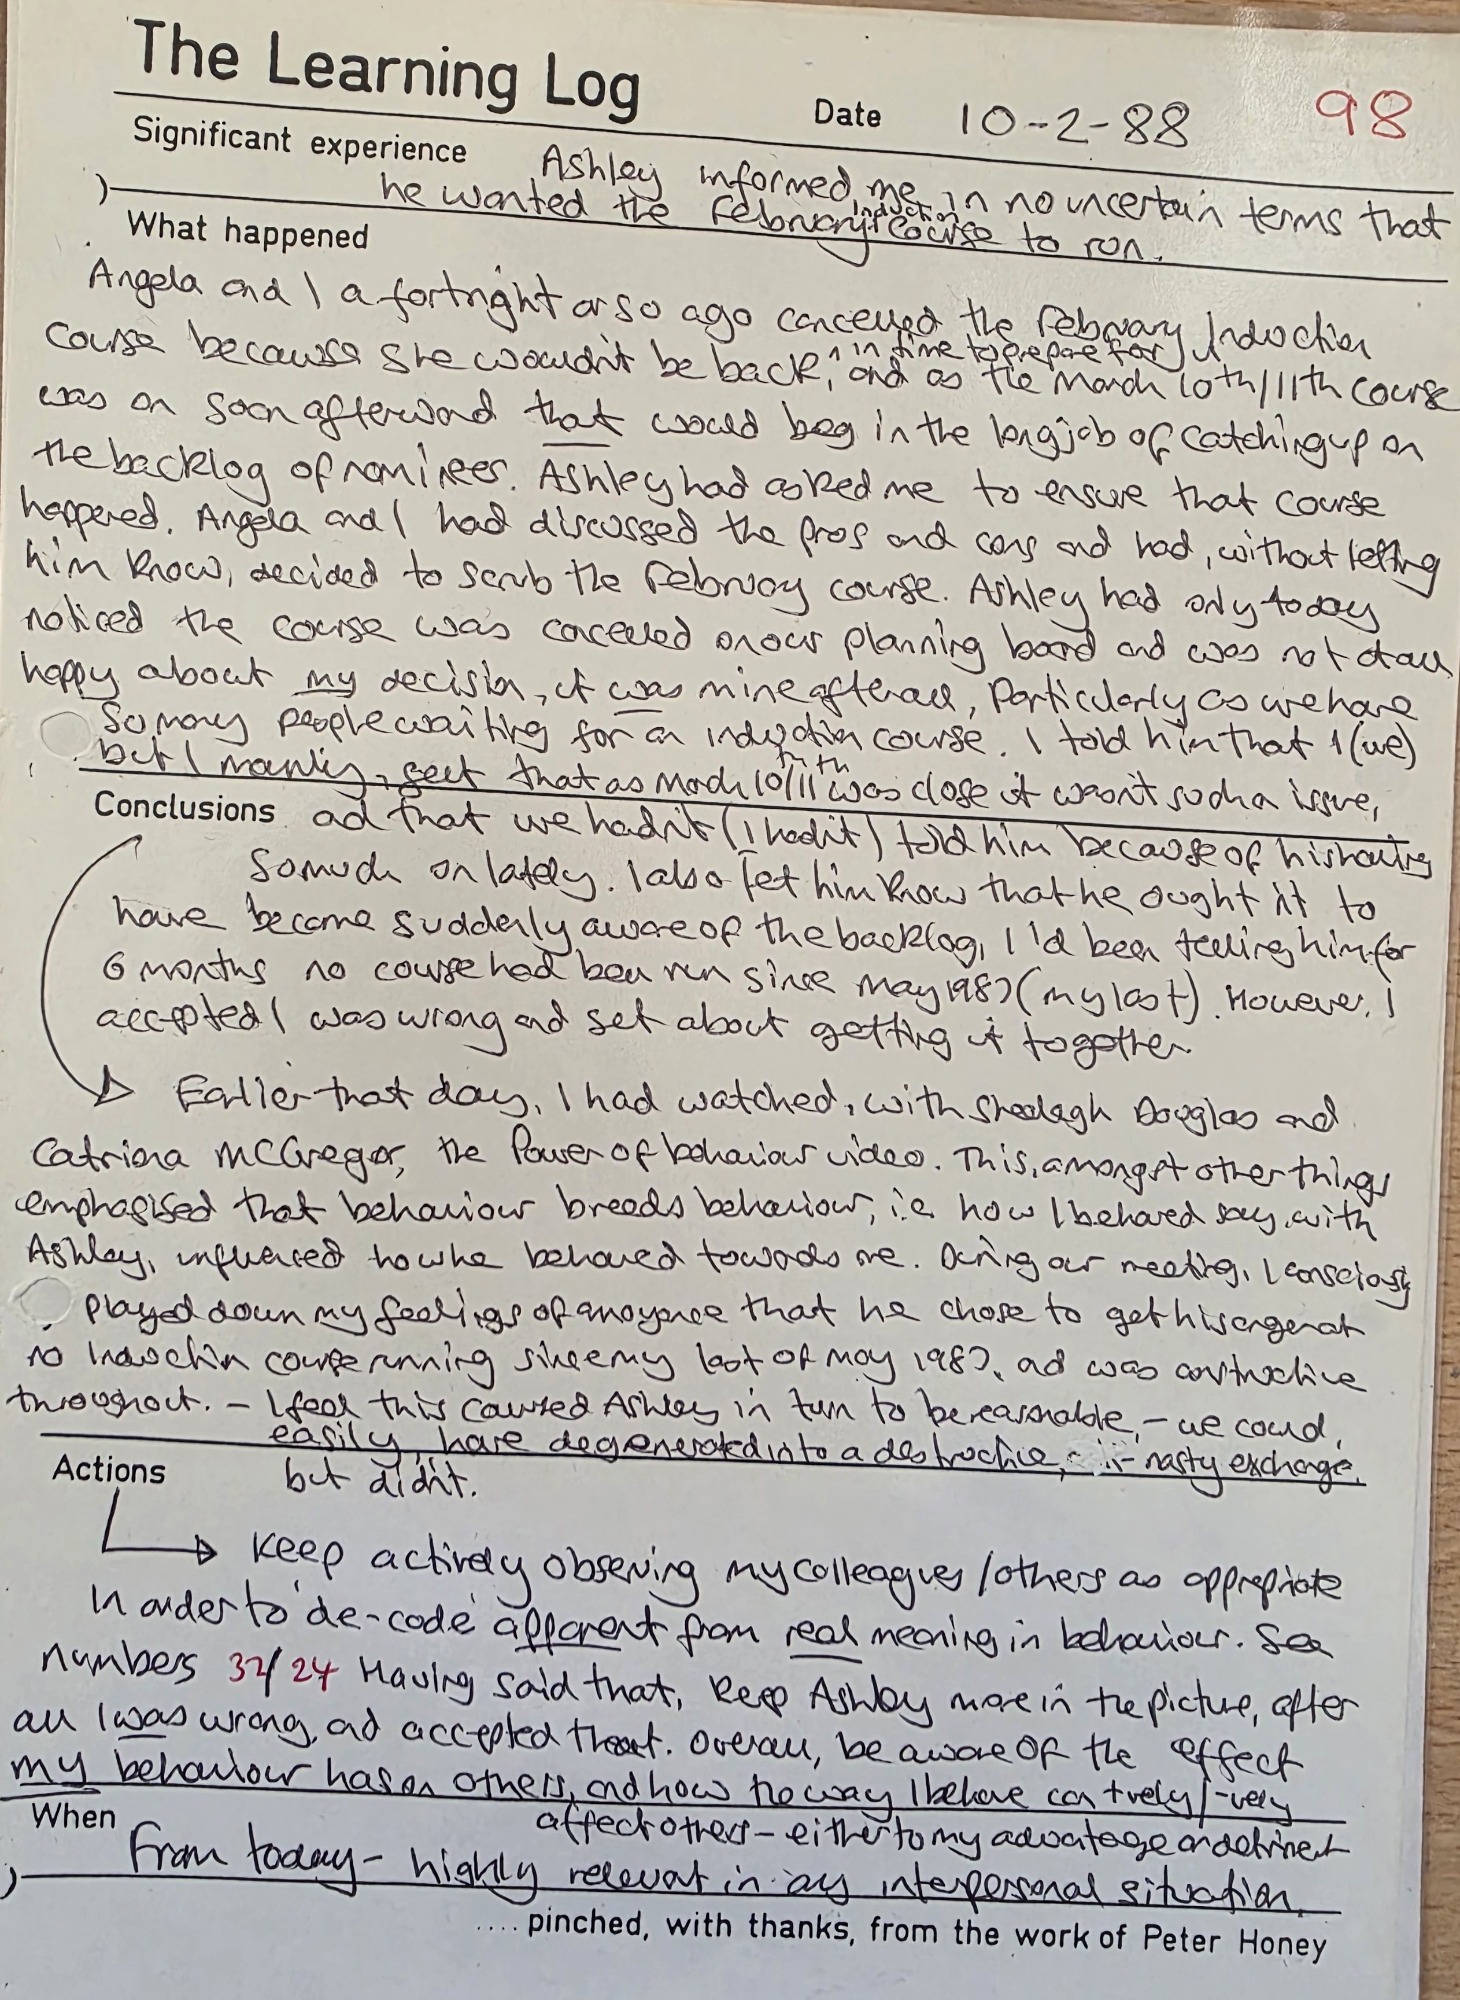 The Learning Log
Date 10-2-88 98
Significant experience Ashley informed me in no uncertain terms that
he wanted the February induction course to run.
What happened
Angela and I a fortnight or so ago cancelled the February Induction
course because she wouldn't be back, in time to prepare for, and as the March 10th/11th course
was on soon afterward that would beg in the long job of catching up on
the backlog of nominees. Ashley had asked me to ensure that course
happened. Angela and I had discussed the pros and cons and had, without letting
him know, decided to scrub the February course. Ashley had only today
noticed the course was cancelled on our planning board and was not at all
happy about my decision, it was mine after all, particularly as we have
so many people waiting for an induction course. I told him that I (we)
but I mainly, felt that as March 10/11th was close it wasn't such a issue,
Conclusions ad that we hadn't (I hadn't) told him because of his having
so much on lately. I also let him know that he ought n't to
have become suddenly aware of the backlog, I'd been telling him for
6 months no course had been run since May 1987 (my last). However, I
accepted I was wrong and set about getting it together.
Earlier that day, I had watched, with Sheelagh Douglas and
Catriona McGregor, the Power of behaviour video. This, amongst other things
emphasised that behaviour breeds behaviour, i.e. how I behaved say, with
Ashley, influenced how he behaved towards me. During our meeting, I consciously
played down my feelings of annoyance that he chose to get his anger at
no Induction course running since my last of May 1987, ad was constructive
throughout. - I feel this caused Ashley in turn to be reasonable, - we could,
easily, have degenerated into a destructive, nasty exchange,
Actions but didn't.
Keep actively observing my colleagues/others as appropriate
in order to 'de-code' apparent from real meaning in behaviour. See
numbers 32/24 Having said that, keep Ashley more in the picture, after
all I was wrong, ad accepted that. Overall, be aware of the effect
my behaviour has on others, and how the way I behave can +vely/-vely
When affect others - either to my advantage or detriment
From today - highly relevant in any interpersonal situation.
.... pinched, with thanks, from the work of Peter Honey